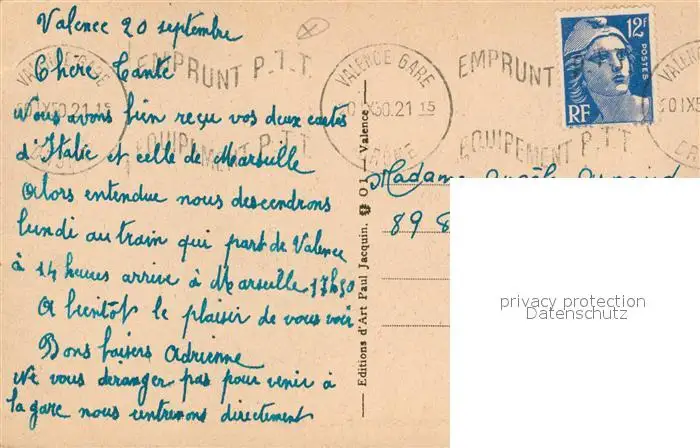 Valence 20 septembre
Chere Tante
Nous avons bien reçu vos deux cartes
d'Italie et celle de Marseille
Alors entendue nous descendrons
lundi au train qui part de Valence
à 14 heures arrive à Marseille 17h30
A bientôt le plaisir de vous voir
Bons baisers Adrienne
Ne vous deranger pas pour venir à
la gare nous rentrerons directement
VALENCE GARE
20 IX 50. 21 15
DROME
EMPRUNT P.T.T.
EQUIPEMENT P.T.T.
VALENCE GARE
20 IX 50. 21 15
DROME
EMPRUNT
EQUIPEMENT P.T.T.
12F
POSTES
RF
Editions d'Art Paul Jacquin. Valence.
Madame
89
privacy protection
Datenschutz